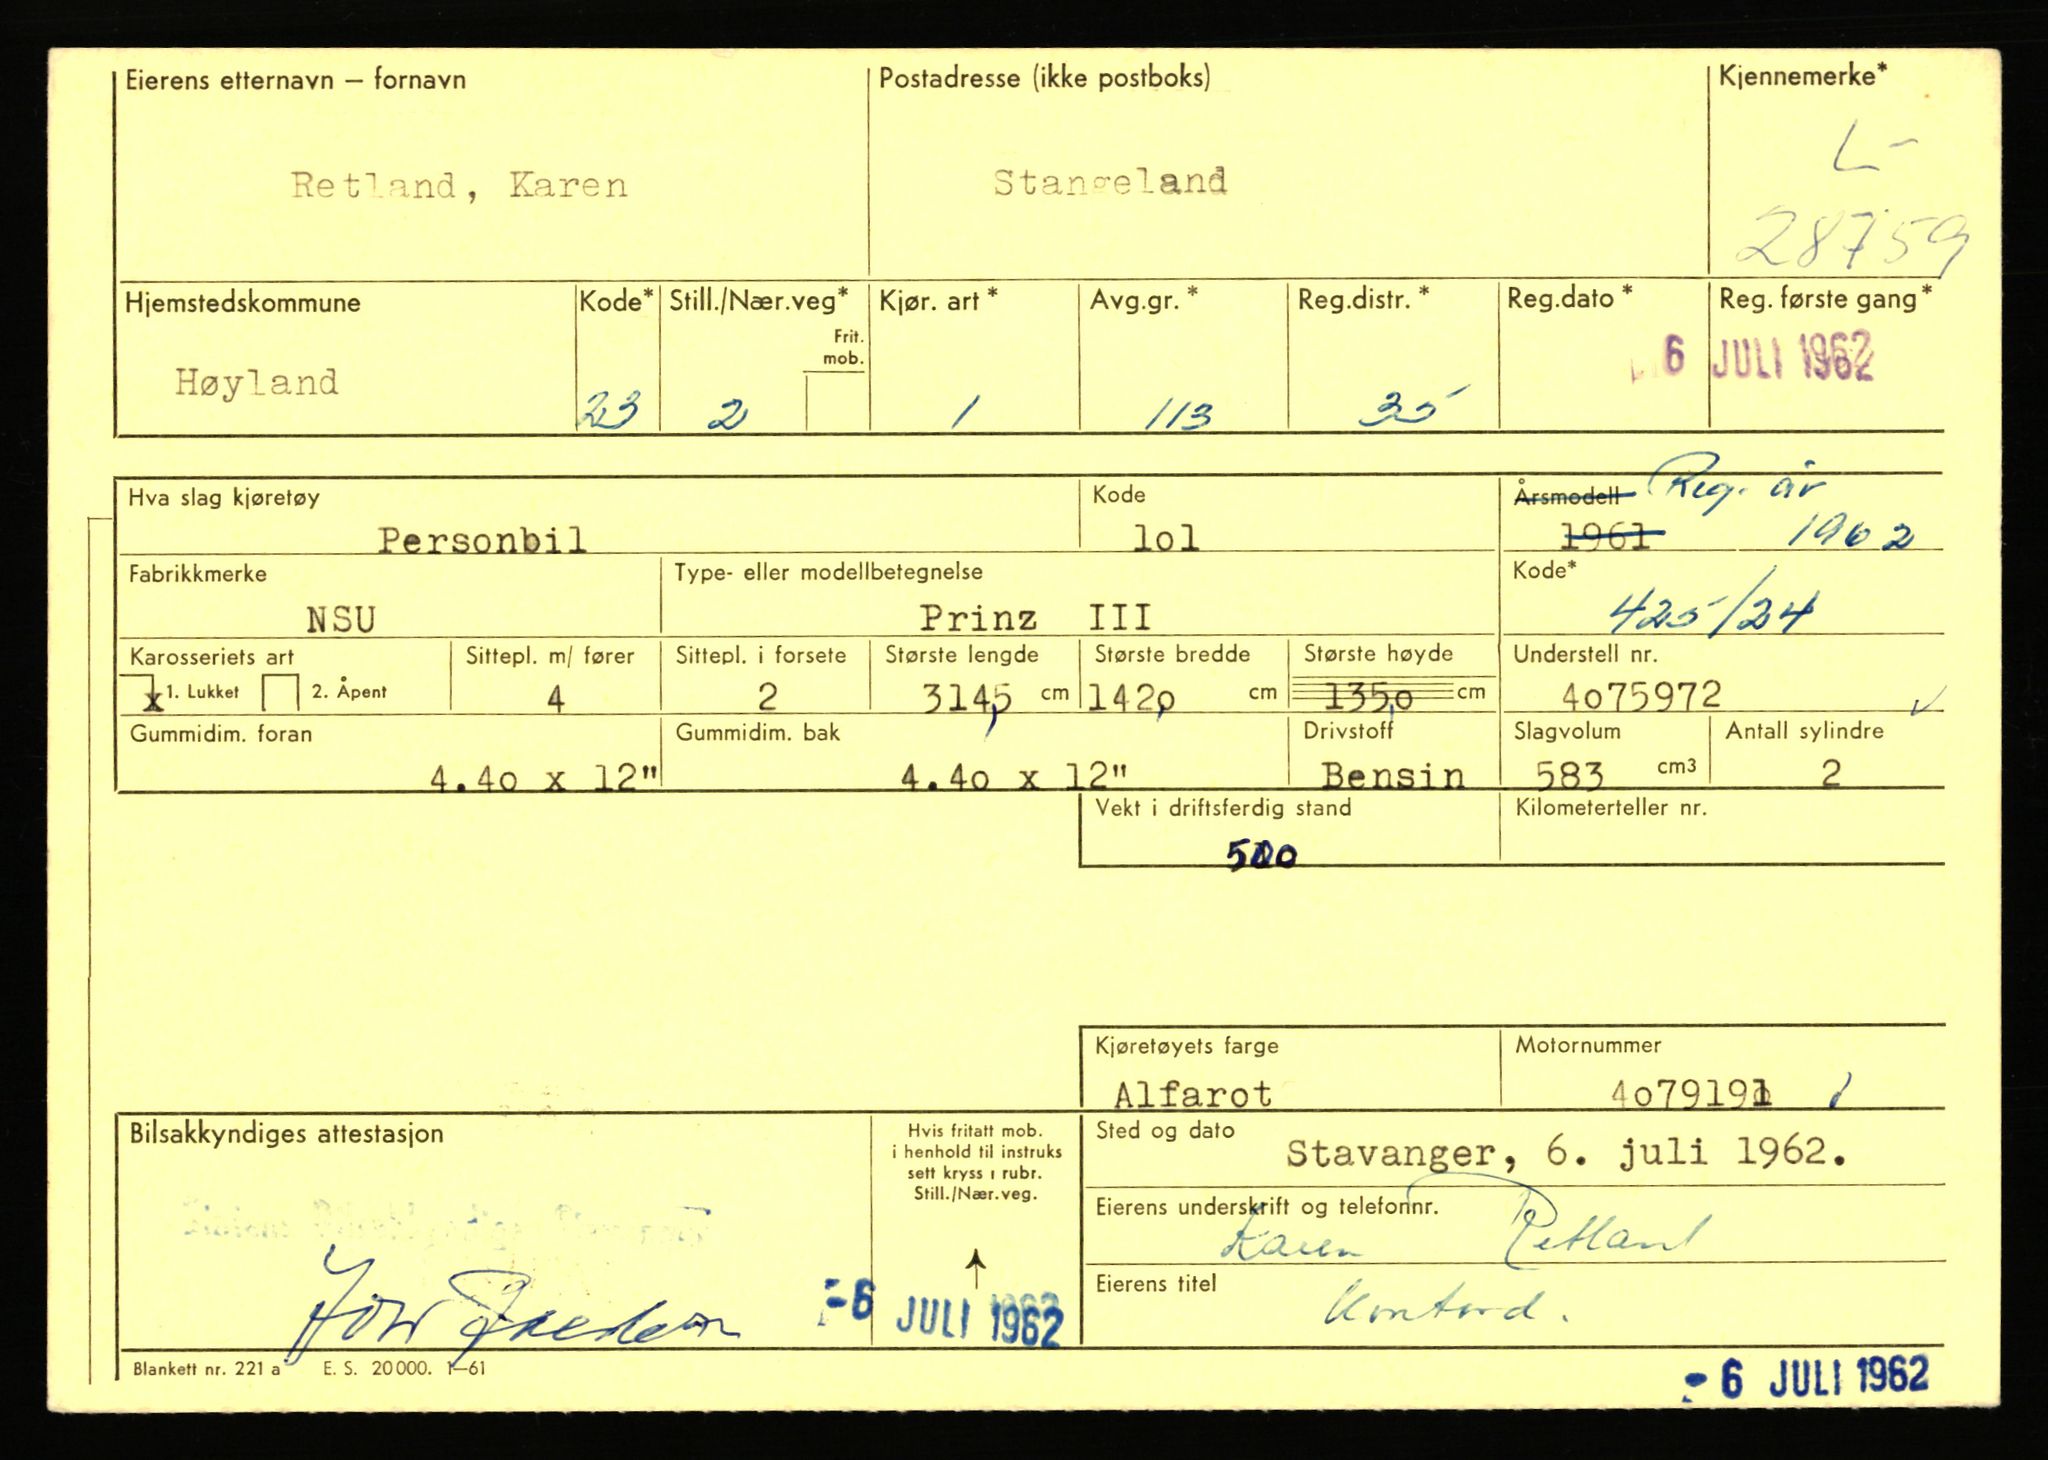 Eierens etternavn – fornavn Postadresse (ikke postboks) Kjennemerke*
L-
Retland, Karen Stangeland
28759
Hjemstedskommune Kode* Still./Nær.veg* Kjør. art* Avg.gr.* Reg.distr.* Reg.dato* Reg. første gang*
Frit.
mob.
6 JULI 1962
Høyland 23 2 1 113 35
Hva slag kjøretøy Kode Årsmodell Reg. år
Personbil lol 1961 1962
Fabrikkmerke Type- eller modellbetegnelse Kode*
NSU Prinz III 425/24
Karosseriets art Sittepl. m/ fører Sittepl. i forsete Største lengde Største bredde Største høyde Understell nr.
x 1. Lukket 2. Åpent 4 2 314,5 cm 142,o cm 135,o cm 4o75972
Gummidim. foran Gummidim. bak Drivstoff Slagvolum Antall sylindre
4.4o x 12" 4.4o x 12" Bensin 583 cm3 2
Vekt i driftsferdig stand Kilometerteller nr.
Kjøretøyets farge Motornummer
Alfarot 4o79191
Bilsakkyndiges attestasjon Hvis fritatt mob. Sted og dato
i henhold til instruks
sett kryss i rubr.
Still./Nær.veg.
Stavanger, 6. juli 1962.
Eierens underskrift og telefonnr.
Karen Retland
Eierens titel
-6 JULI 1962
Blankett nr. 221 a E. S. 20000. 1–61
-6 JULI 1962